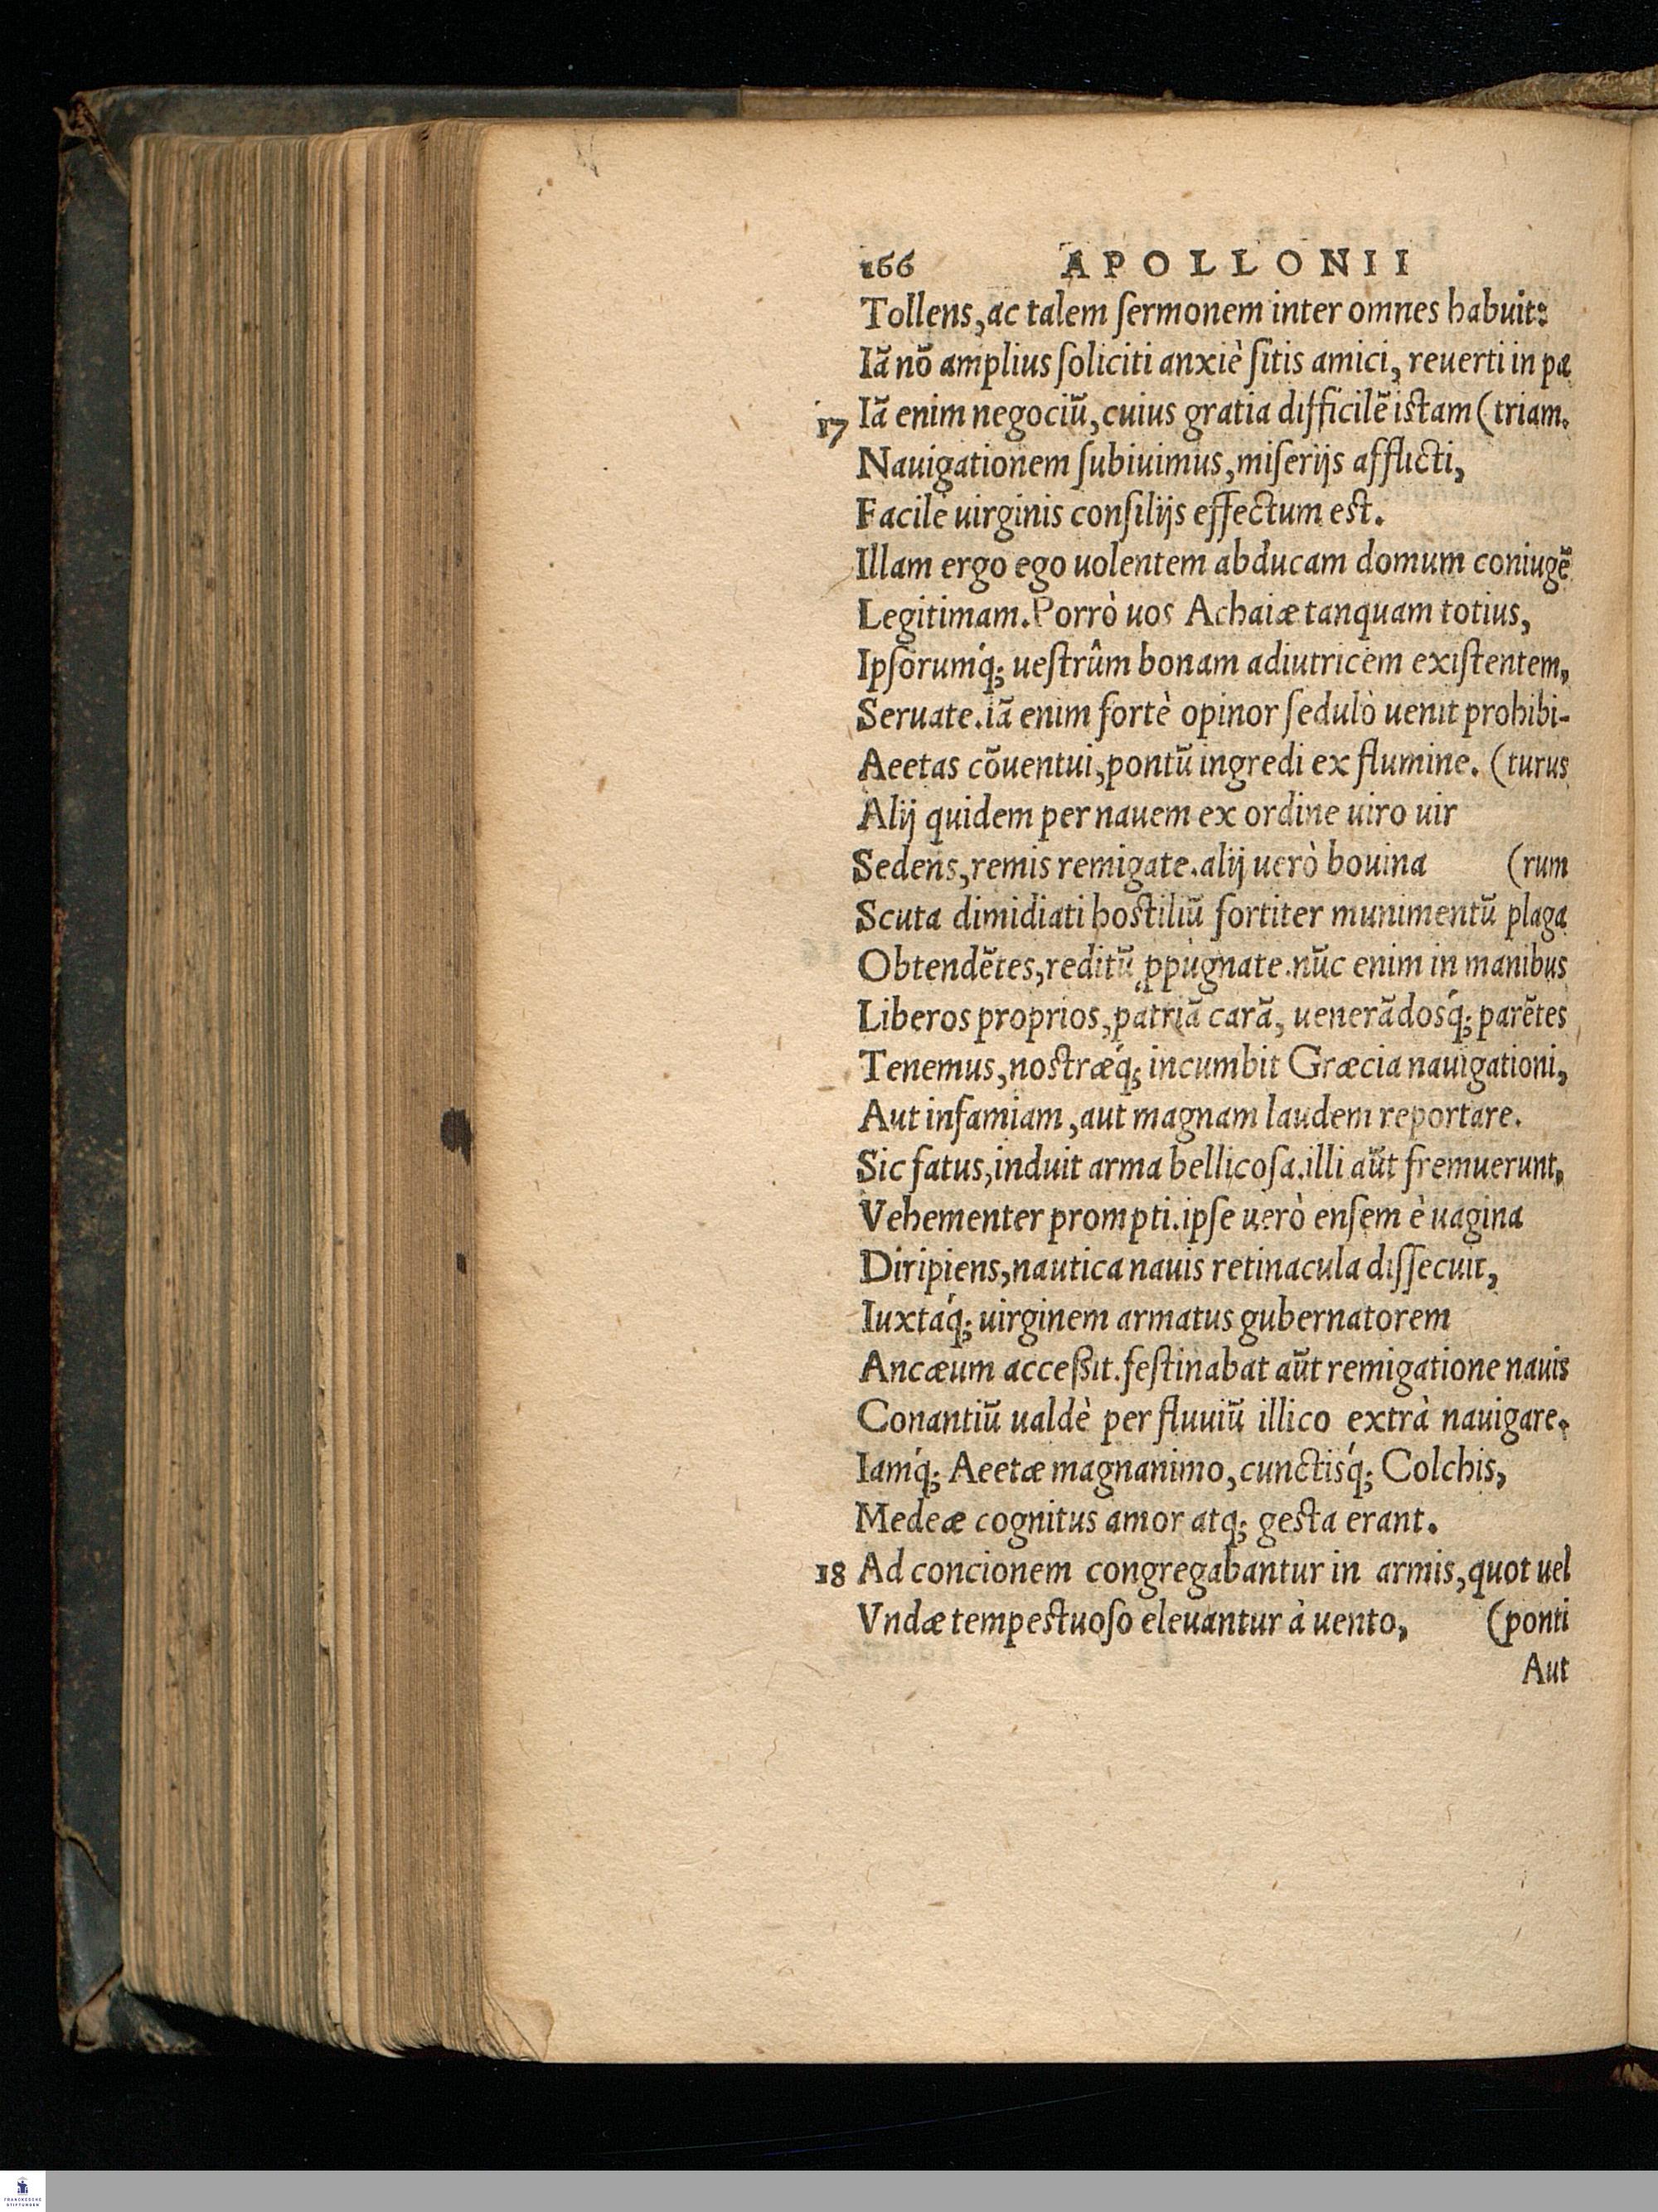 166 APOLLONII
Tollens, ac talem ſermonem inter omnes habuit:
Iã nõ amplius ſoliciti anxiè ſitis amici, reuerti in pa
17 Iã enim negociũ, cuius gratia difficilẽ istam (triam.
Nauigationem ſubiuimus, miſerijs afflicti,
Facile uirginis conſilijs effectum est.
Illam ergo ego uolentem abducam domum coniugẽ
Legitimam. Porrò uos Achaiæ tanquam totius,
Ipſorumq́; ueſtrûm bonam adiutricem exiſtentem,
Seruate. iã enim fortè opinor ſedulò uenit prohibi-
Aeetas cõuentui, pontũ ingredi ex flumine. (turus
Alij quidem per nauem ex ordine uiro uir
Sedens, remis remigate. alij uerò bouina (rum
Scuta dimidiati hostiliũ fortiter munimentũ plaga
Obtendẽtes, reditũ ꝓpugnate. nũc enim in manibus
Liberos proprios, patriã carã, uenerãdosq́; parẽtes
Tenemus, nostræq́; incumbit Græcia nauigationi,
Aut infamiam, aut magnam laudem reportare.
Sic fatus, induit arma bellicoſa. illi aũt fremuerunt,
Vehementer prompti. ipſe uerò enſem è uagina
Diripiens, nautica nauis retinacula diſſecuit,
Iuxtaq́; uirginem armatus gubernatorem
Ancæum acceſsit. feſtinabat aũt remigatione nauis
Conantiũ ualdè per fluuiũ illico extrà nauigare.
Iamq́; Aeetæ magnanimo, cunctisq́; Colchis,
Medeæ cognitus amor atq; gesta erant.
18 Ad concionem congregabantur in armis, quot uel
Vndæ tempestuoſo eleuantur à uento, (ponti
Aut
FRANCKESCHE
STIFTUNGEN